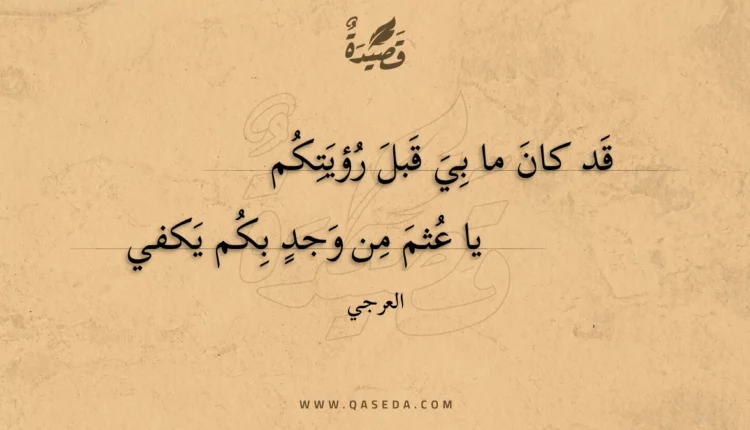 قَصِيْدَةٌ
قَد كانَ ما بِيَ قَبلَ رُؤيَتِكُم
يا عُثمَ مِن وَجدٍ بِكُم يَكفي
العرجي
WWW.QASEDA.COM